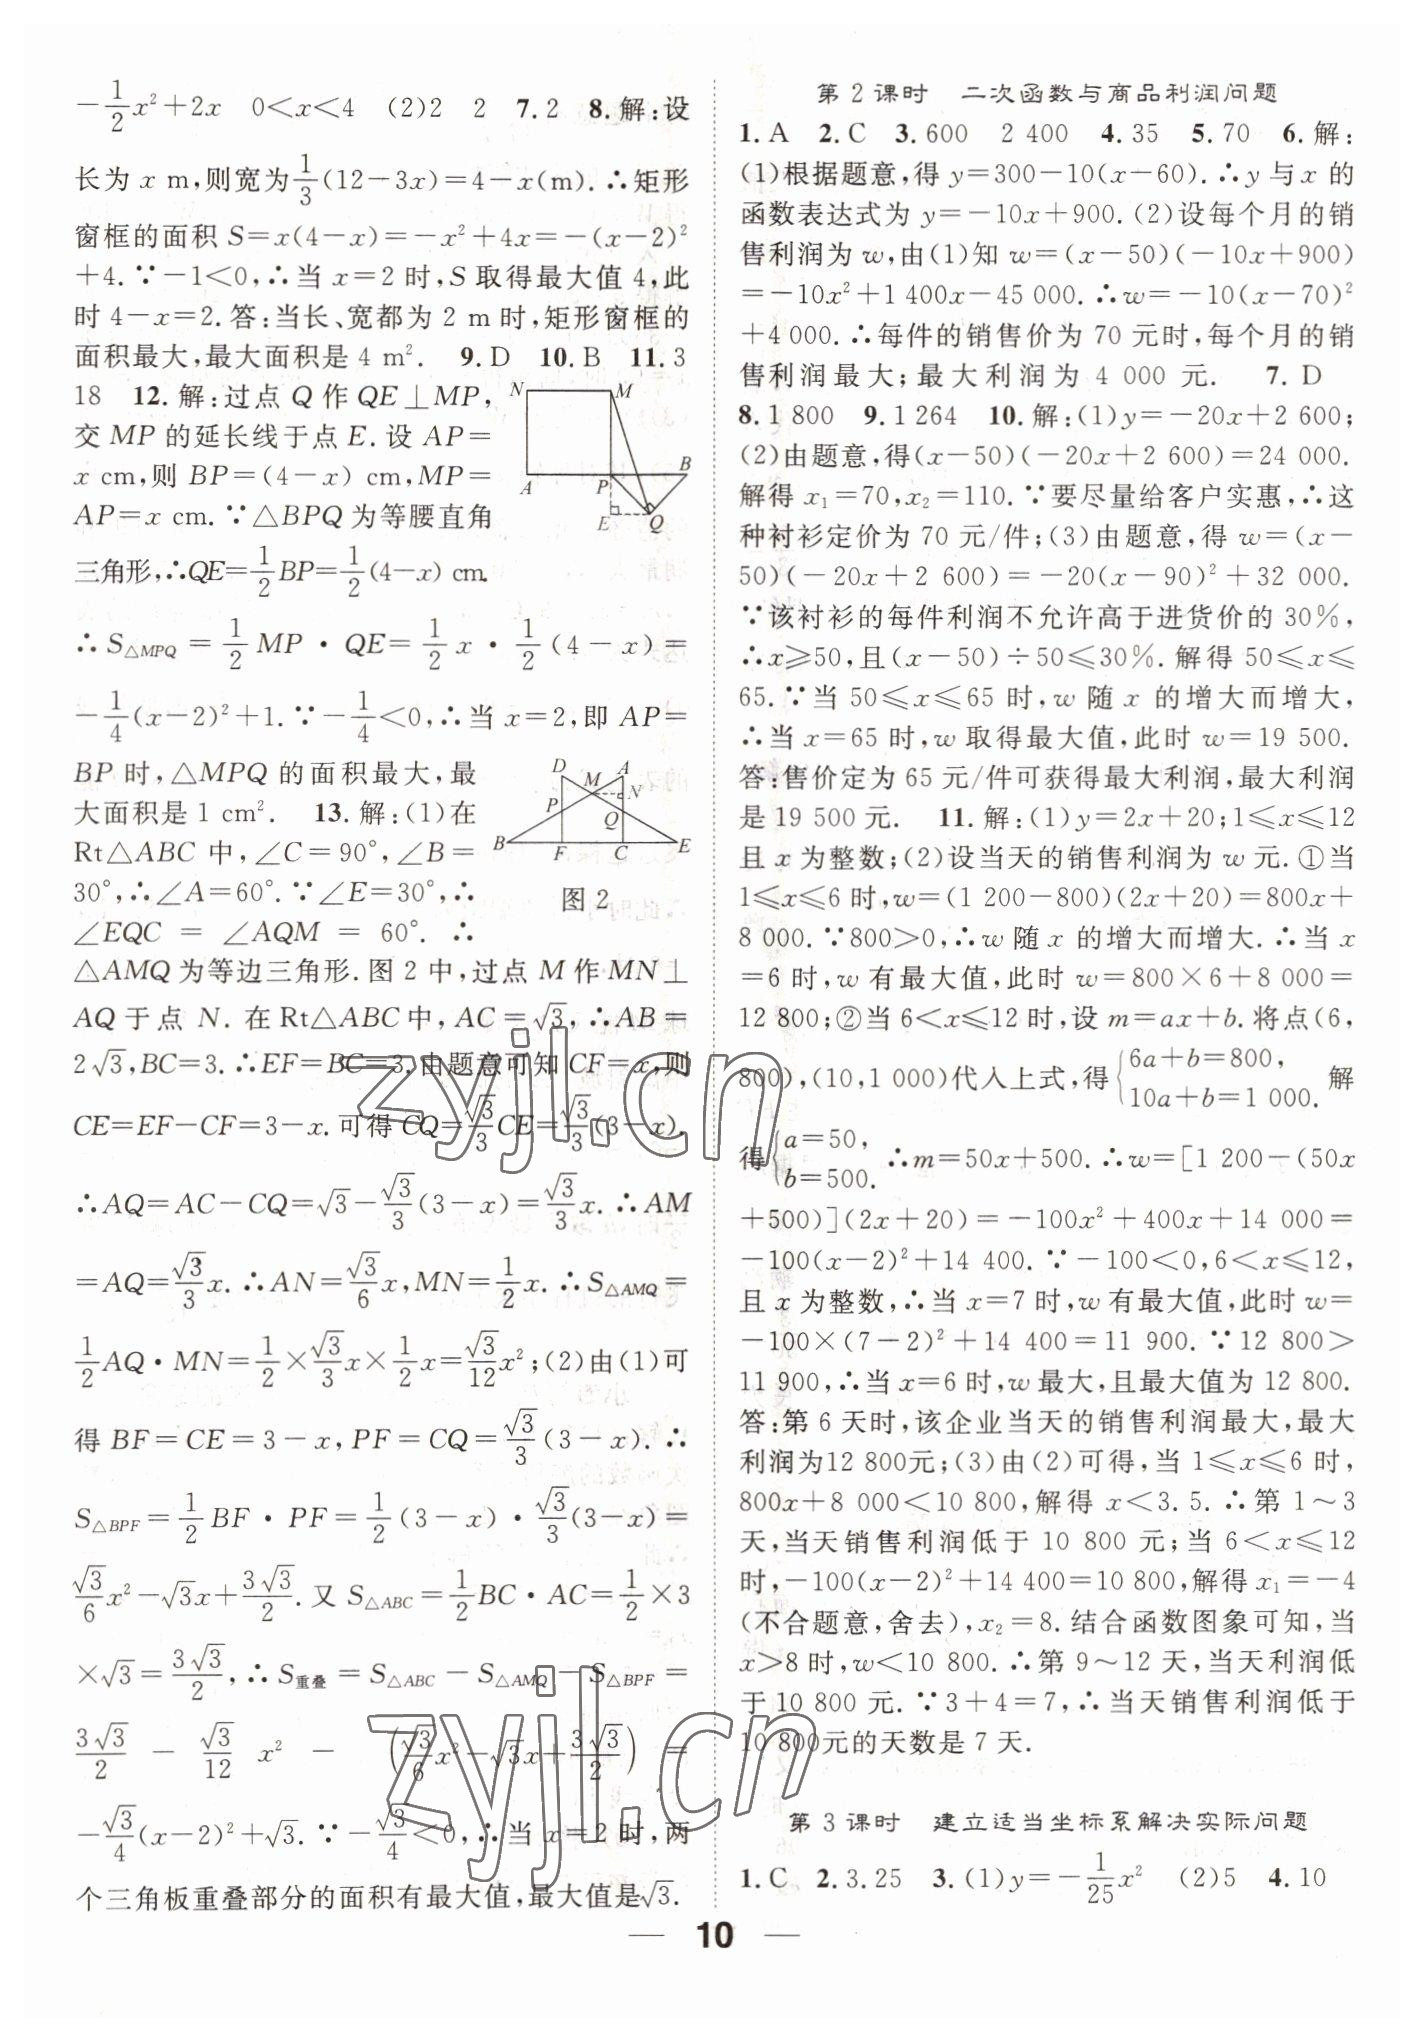 -1/2x²+2x 0<x<4 (2)2 2 7.2 8.解:设
长为 x m,则宽为1/3(12-3x)=4-x(m).∴矩形
窗框的面积 S=x(4-x)=-x²+4x=-(x-2)²
+4.∵-1<0,∴当 x=2 时,S 取得最大值 4,此
时 4-x=2.答:当长、宽都为 2 m 时,矩形窗框的
面积最大,最大面积是 4 m². 9.D 10.B 11.3
18 12.解:过点 Q 作 QE⊥MP,
交 MP 的延长线于点 E.设 AP=
x cm,则 BP=(4-x) cm,MP=
AP=x cm.∵△BPQ 为等腰直角
三角形,∴QE=1/2BP=1/2(4-x) cm.
N M A P B E Q
∴S△MPQ=1/2MP·QE=1/2x·1/2(4-x)=
-1/4(x-2)²+1.∵-1/4<0,∴当 x=2,即 AP=
BP 时,△MPQ 的面积最大,最
大面积是 1 cm². 13.解:(1)在
Rt△ABC 中,∠C=90°,∠B=
30°,∴∠A=60°.∵∠E=30°,∴
∠EQC = ∠AQM = 60°. ∴
D A M N P Q B F C E
图 2
△AMQ 为等边三角形.图 2 中,过点 M 作 MN⊥
AQ 于点 N. 在 Rt△ABC 中,AC=√3,∴AB=
2√3,BC=3.∴EF=BC=3,由题意可知 CF=x,则
CE=EF-CF=3-x.可得 CQ=√3/3CE=√3/3(3-x).
∴AQ=AC-CQ=√3-√3/3(3-x)=√3/3x.∴AM
=AQ=√3/3x.∴AN=√3/6x,MN=1/2x.∴S△AMQ=
1/2AQ·MN=1/2×√3/3x×1/2x=√3/12x²;(2)由(1)可
得 BF=CE=3-x,PF=CQ=√3/3(3-x).∴
S△BPF=1/2BF·PF=1/2(3-x)·√3/3(3-x)=
√3/6x²-√3x+3√3/2.又 S△ABC=1/2BC·AC=1/2×3
×√3=3√3/2,∴S重叠=S△ABC-S△AMQ-S△BPF=
3√3/2-√3/12x²-(√3/6x²-√3x+3√3/2)=
-√3/4(x-2)²+√3.∵-√3/4<0,∴当 x=2 时,两
个三角板重叠部分的面积有最大值,最大值是√3.
第 2 课时 二次函数与商品利润问题
1.A 2.C 3.600 2 400 4.35 5.70 6.解:
(1)根据题意,得 y=300-10(x-60).∴y 与 x 的
函数表达式为 y=-10x+900.(2)设每个月的销
售利润为 w,由(1)知 w=(x-50)(-10x+900)
=-10x²+1 400x-45 000.∴w=-10(x-70)²
+4 000.∴每件的销售价为 70 元时,每个月的销
售利润最大;最大利润为 4 000 元. 7.D
8.1 800 9.1 264 10.解:(1)y=-20x+2 600;
(2)由题意,得(x-50)(-20x+2 600)=24 000.
解得 x₁=70,x₂=110.∵要尽量给客户实惠,∴这
种衬衫定价为 70 元/件;(3)由题意,得 w=(x-
50)(-20x+2 600)=-20(x-90)²+32 000.
∵该衬衫的每件利润不允许高于进货价的 30%,
∴x≥50,且(x-50)÷50≤30%.解得 50≤x≤
65.∵当 50≤x≤65 时,w 随 x 的增大而增大,
∴当 x=65 时,w 取得最大值,此时 w=19 500.
答:售价定为 65 元/件可获得最大利润,最大利润
是 19 500 元. 11.解:(1)y=2x+20;1≤x≤12
且 x 为整数;(2)设当天的销售利润为 w 元.①当
1≤x≤6 时,w=(1 200-800)(2x+20)=800x+
8 000.∵800>0,∴w 随 x 的增大而增大.∴当 x
=6 时,w 有最大值,此时 w=800×6+8 000=
12 800;②当 6<x≤12 时,设 m=ax+b.将点(6,
800),(10,1 000)代入上式,得{6a+b=800, 10a+b=1 000. 解
得{a=50, b=500. ∴m=50x+500.∴w=[1 200-(50x
+500)](2x+20)=-100x²+400x+14 000=
-100(x-2)²+14 400.∵-100<0,6<x≤12,
且 x 为整数,∴当 x=7 时,w 有最大值,此时 w=
-100×(7-2)²+14 400=11 900.∵12 800>
11 900,∴当 x=6 时,w最大,且最大值为 12 800.
答:第 6 天时,该企业当天的销售利润最大,最大
利润为12 800元;(3)由(2)可得,当 1≤x≤6 时,
800x+8 000<10 800,解得 x<3.5.∴第 1~3
天,当天销售利润低于 10 800 元;当 6<x≤12
时,-100(x-2)²+14 400=10 800,解得 x₁=-4
(不合题意,舍去),x₂=8.结合函数图象可知,当
x>8 时,w<10 800.∴第 9~12 天,当天利润低
于 10 800 元.∵3+4=7,∴当天销售利润低于
10 800元的天数是 7 天.
第 3 课时 建立适当坐标系解决实际问题
1.C 2.3.25 3.(1)y=-1/25x² (2)5 4.10
— 10 —
zyjl.cn
zyjl.cn